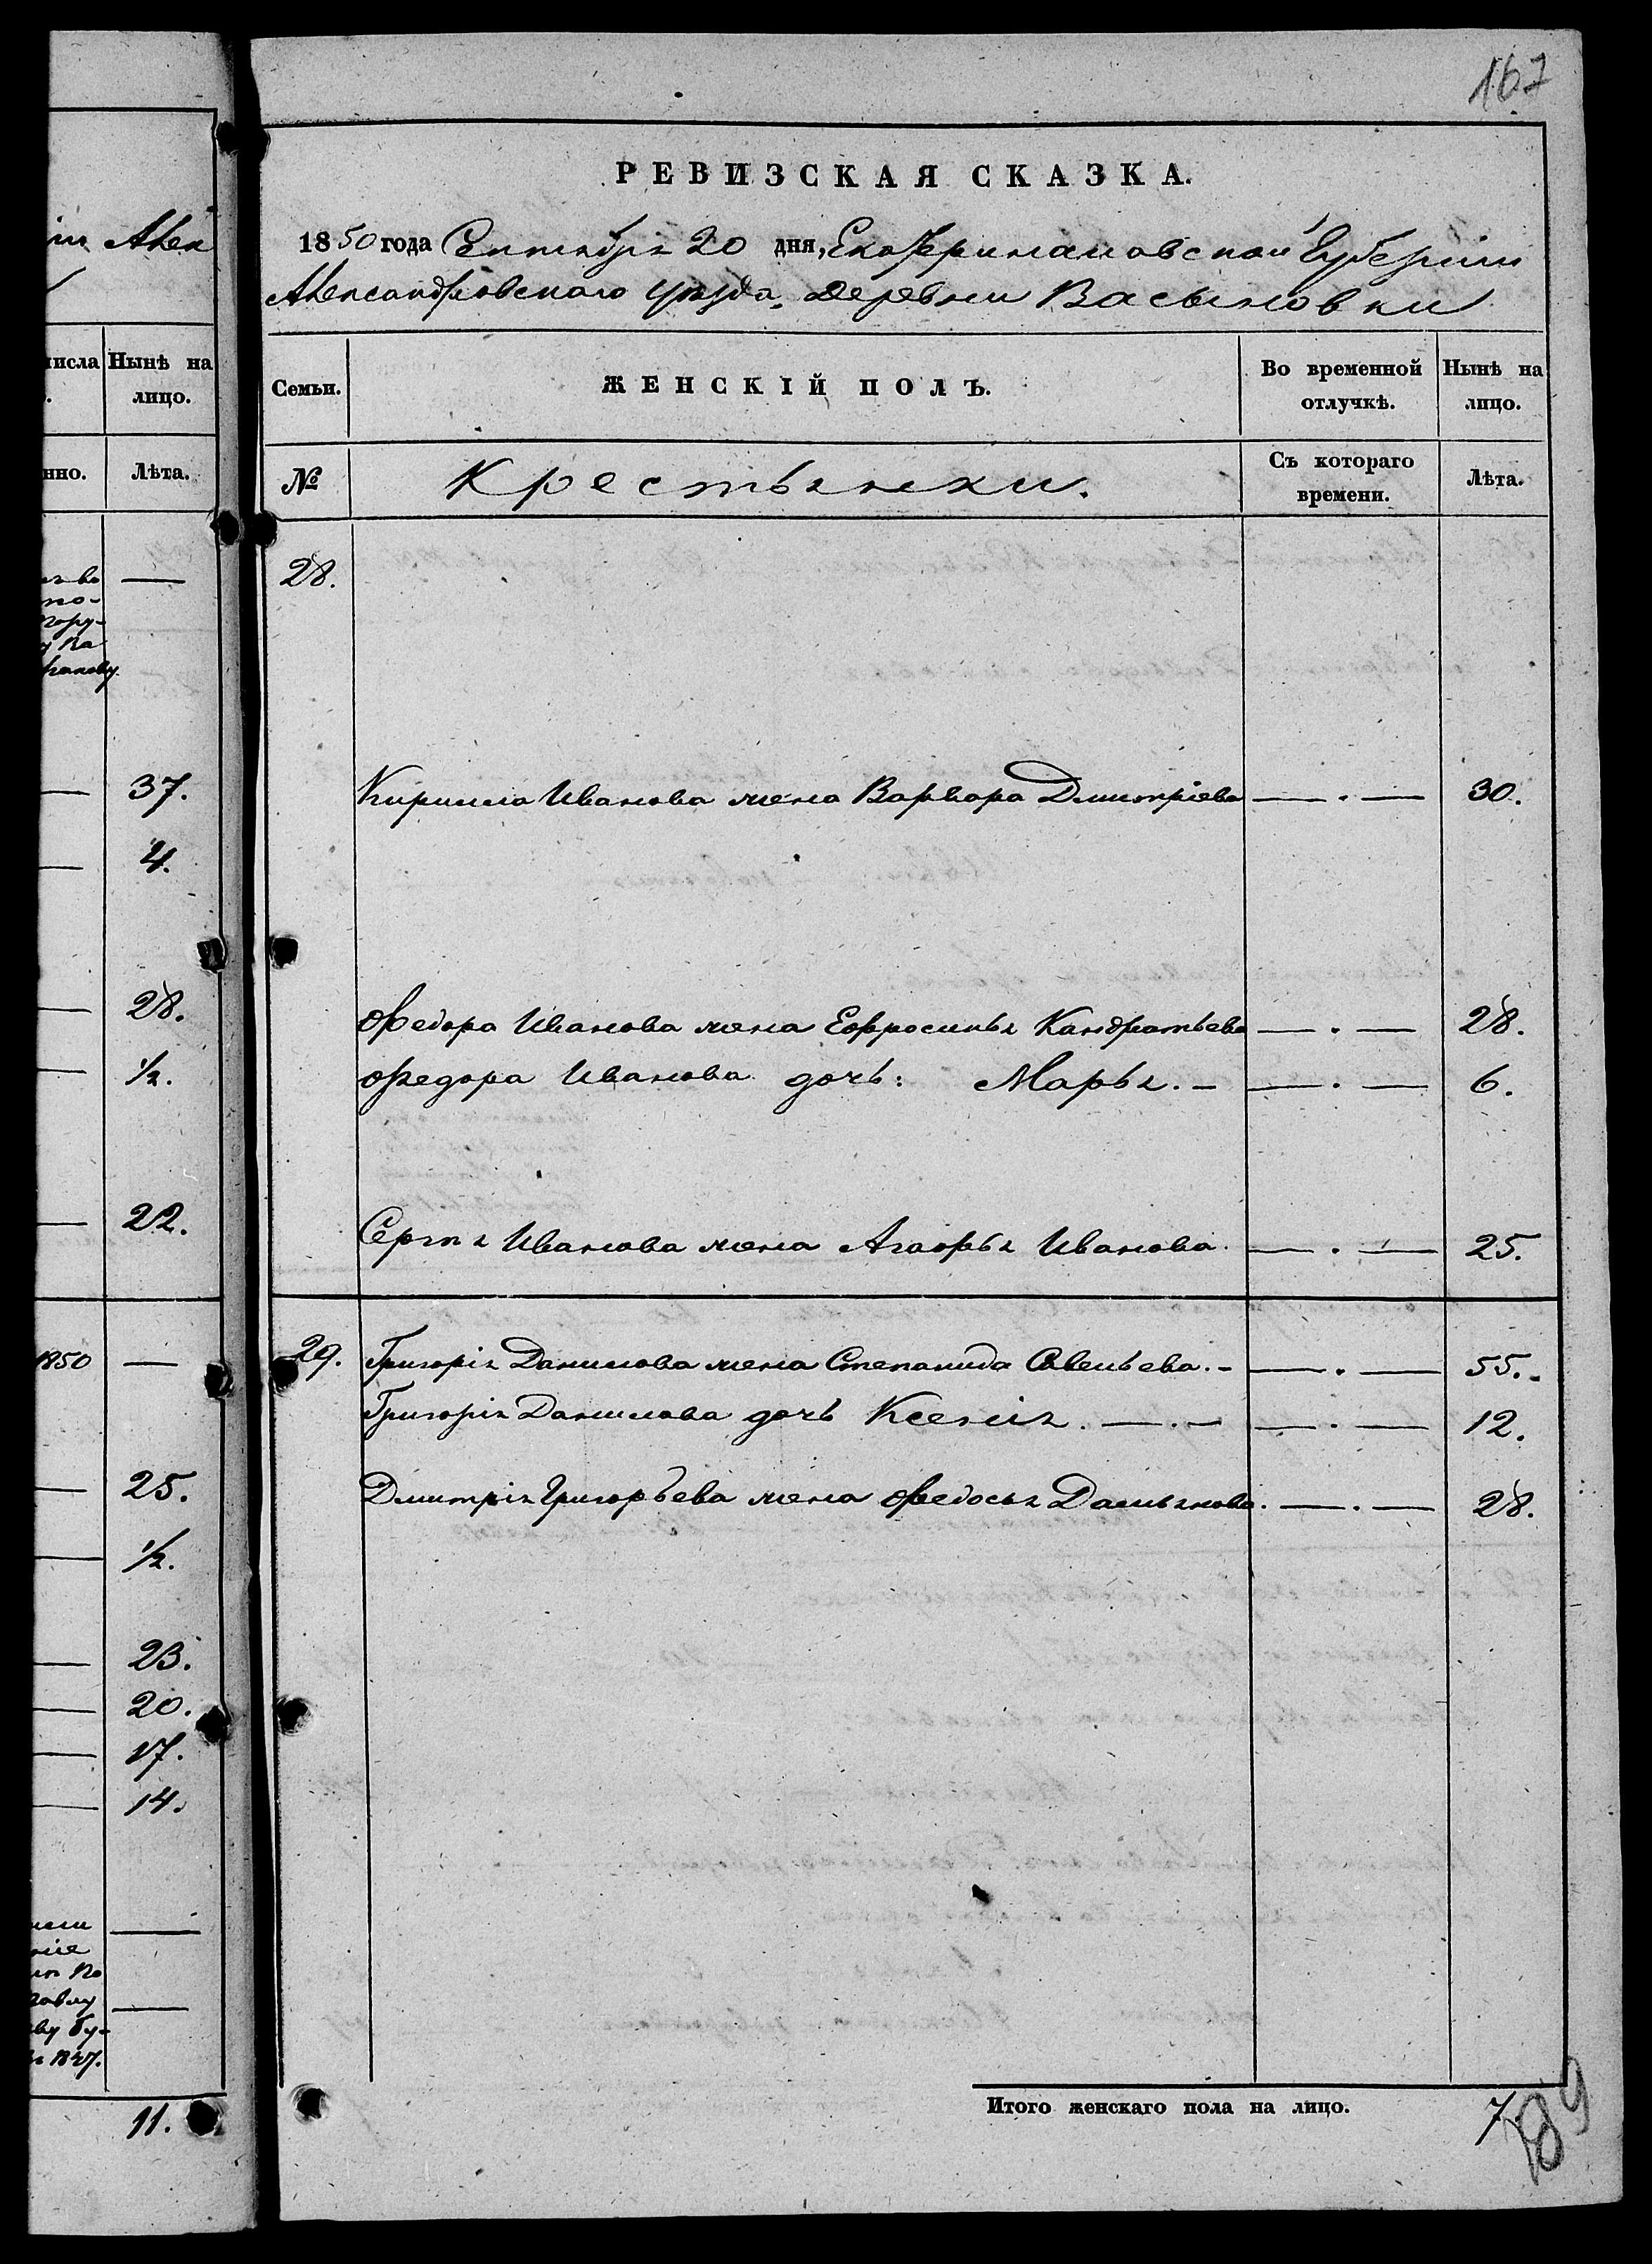 167
РЕВИЗСКАЯ СКАЗКА.
1850 года Сентября 20 дня, Екатеринославской Губерніи
Александровскаго уѣзда, деревни Васыновки
Семьи.
ЖЕНСКІЙ ПОЛЪ.
Во временной отлучкѣ.
Нынѣ на лицо.
№
Крестьянки.
Съ котораго времени.
Лѣта.
28.
Кирилла Иванова жена Варвара Дмитріева —.— 30.
Федора Иванова жена Ефросинья Кандратьева —.— 28.
Федора Иванова дочь: Марья. — —.— 6.
Сергѣя Иванова жена Агафья Иванова. —.— 25.
29. Григорія Данилова жена Степанида Савельева. — —.— 55.
Григорія Данилова дочь Ксенія. —.— —.— 12.
Дмитрія Григорьева жена Федосья Дамьянова. —.— 28.
Итого женскаго пола на лицо. 7.
189
Алек
Нынѣ на
лицо.
Лѣта.
—
37.
4.
28.
1/2.
22.
1850 —
25.
1/2.
23.
20.
17.
14.
—
—
11.